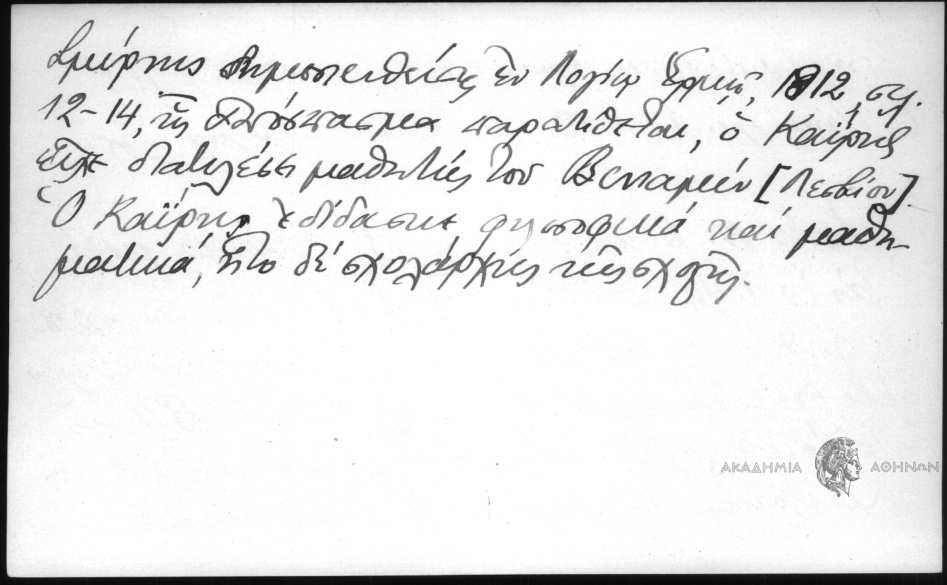 Σμύρνης δημοσιευθείσης ἐν Λογίῳ Ἑρμῇ, 1812, σελ.
12-14, ἧς ἀπόσπασμα παρατίθεται, ὁ Καΐρης
εἶχε διατελέσει μαθητὴς τοῦ Βενιαμὶν [Λεσβίου].
Ὁ Καΐρης ἐδίδασκε φιλοσοφικά καί μαθη-
ματικά, ἦτο δέ σχολάρχης τῆς σχολῆς.
ΑΚΑΔΗΜΙΑ ΑΘΗΝΩΝ